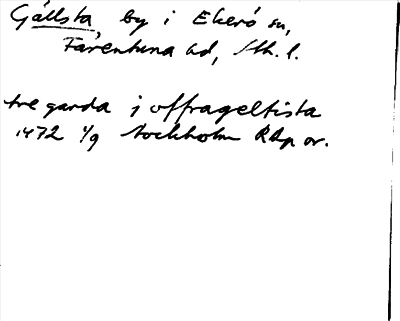 Gällsta, by i Ekerö sn,
Färentuna hd, Sth. l.
tre garda j offrageltista
1472 1/9 Stockholm RAp or.